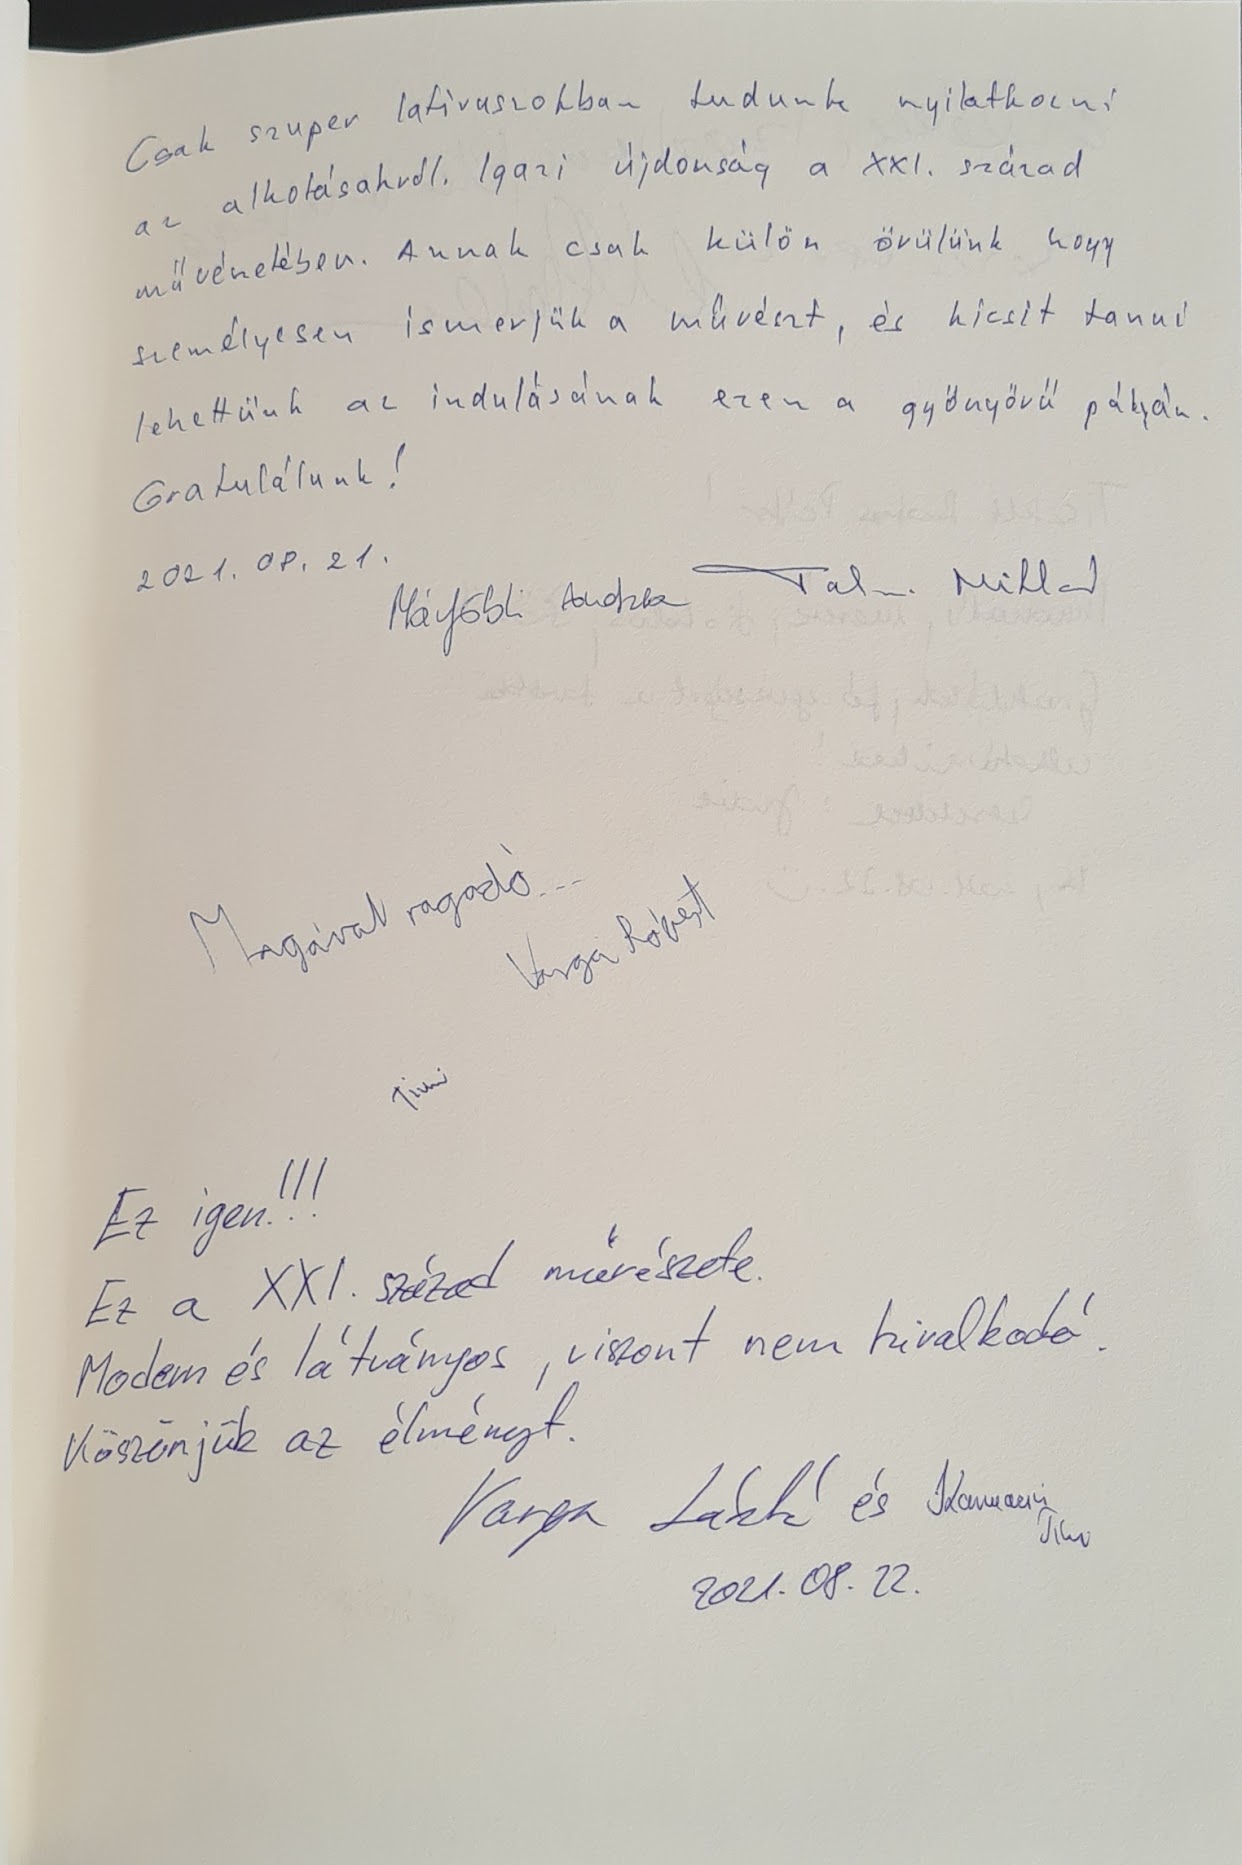 Csak szuper latívuszokban tudunk nyilatkozni
az alkotásokról. Igazi újdonság a XXI. század
művészetében. Annak csak külön örülünk hogy
személyesen ismerjük a művészt, és kicsit tanui
lehettünk az indulásának ezen a gyönyörű pályán.
Gratulálunk!
2021. 08. 21.
Magával ragadó...
Varga Róbert
Timi
Ez igen!!!
Ez a XXI. század művészete.
Modern és látványos, viszont nem hivalkodó.
Köszönjük az élményt.
Varga László és
2021. 08. 22.